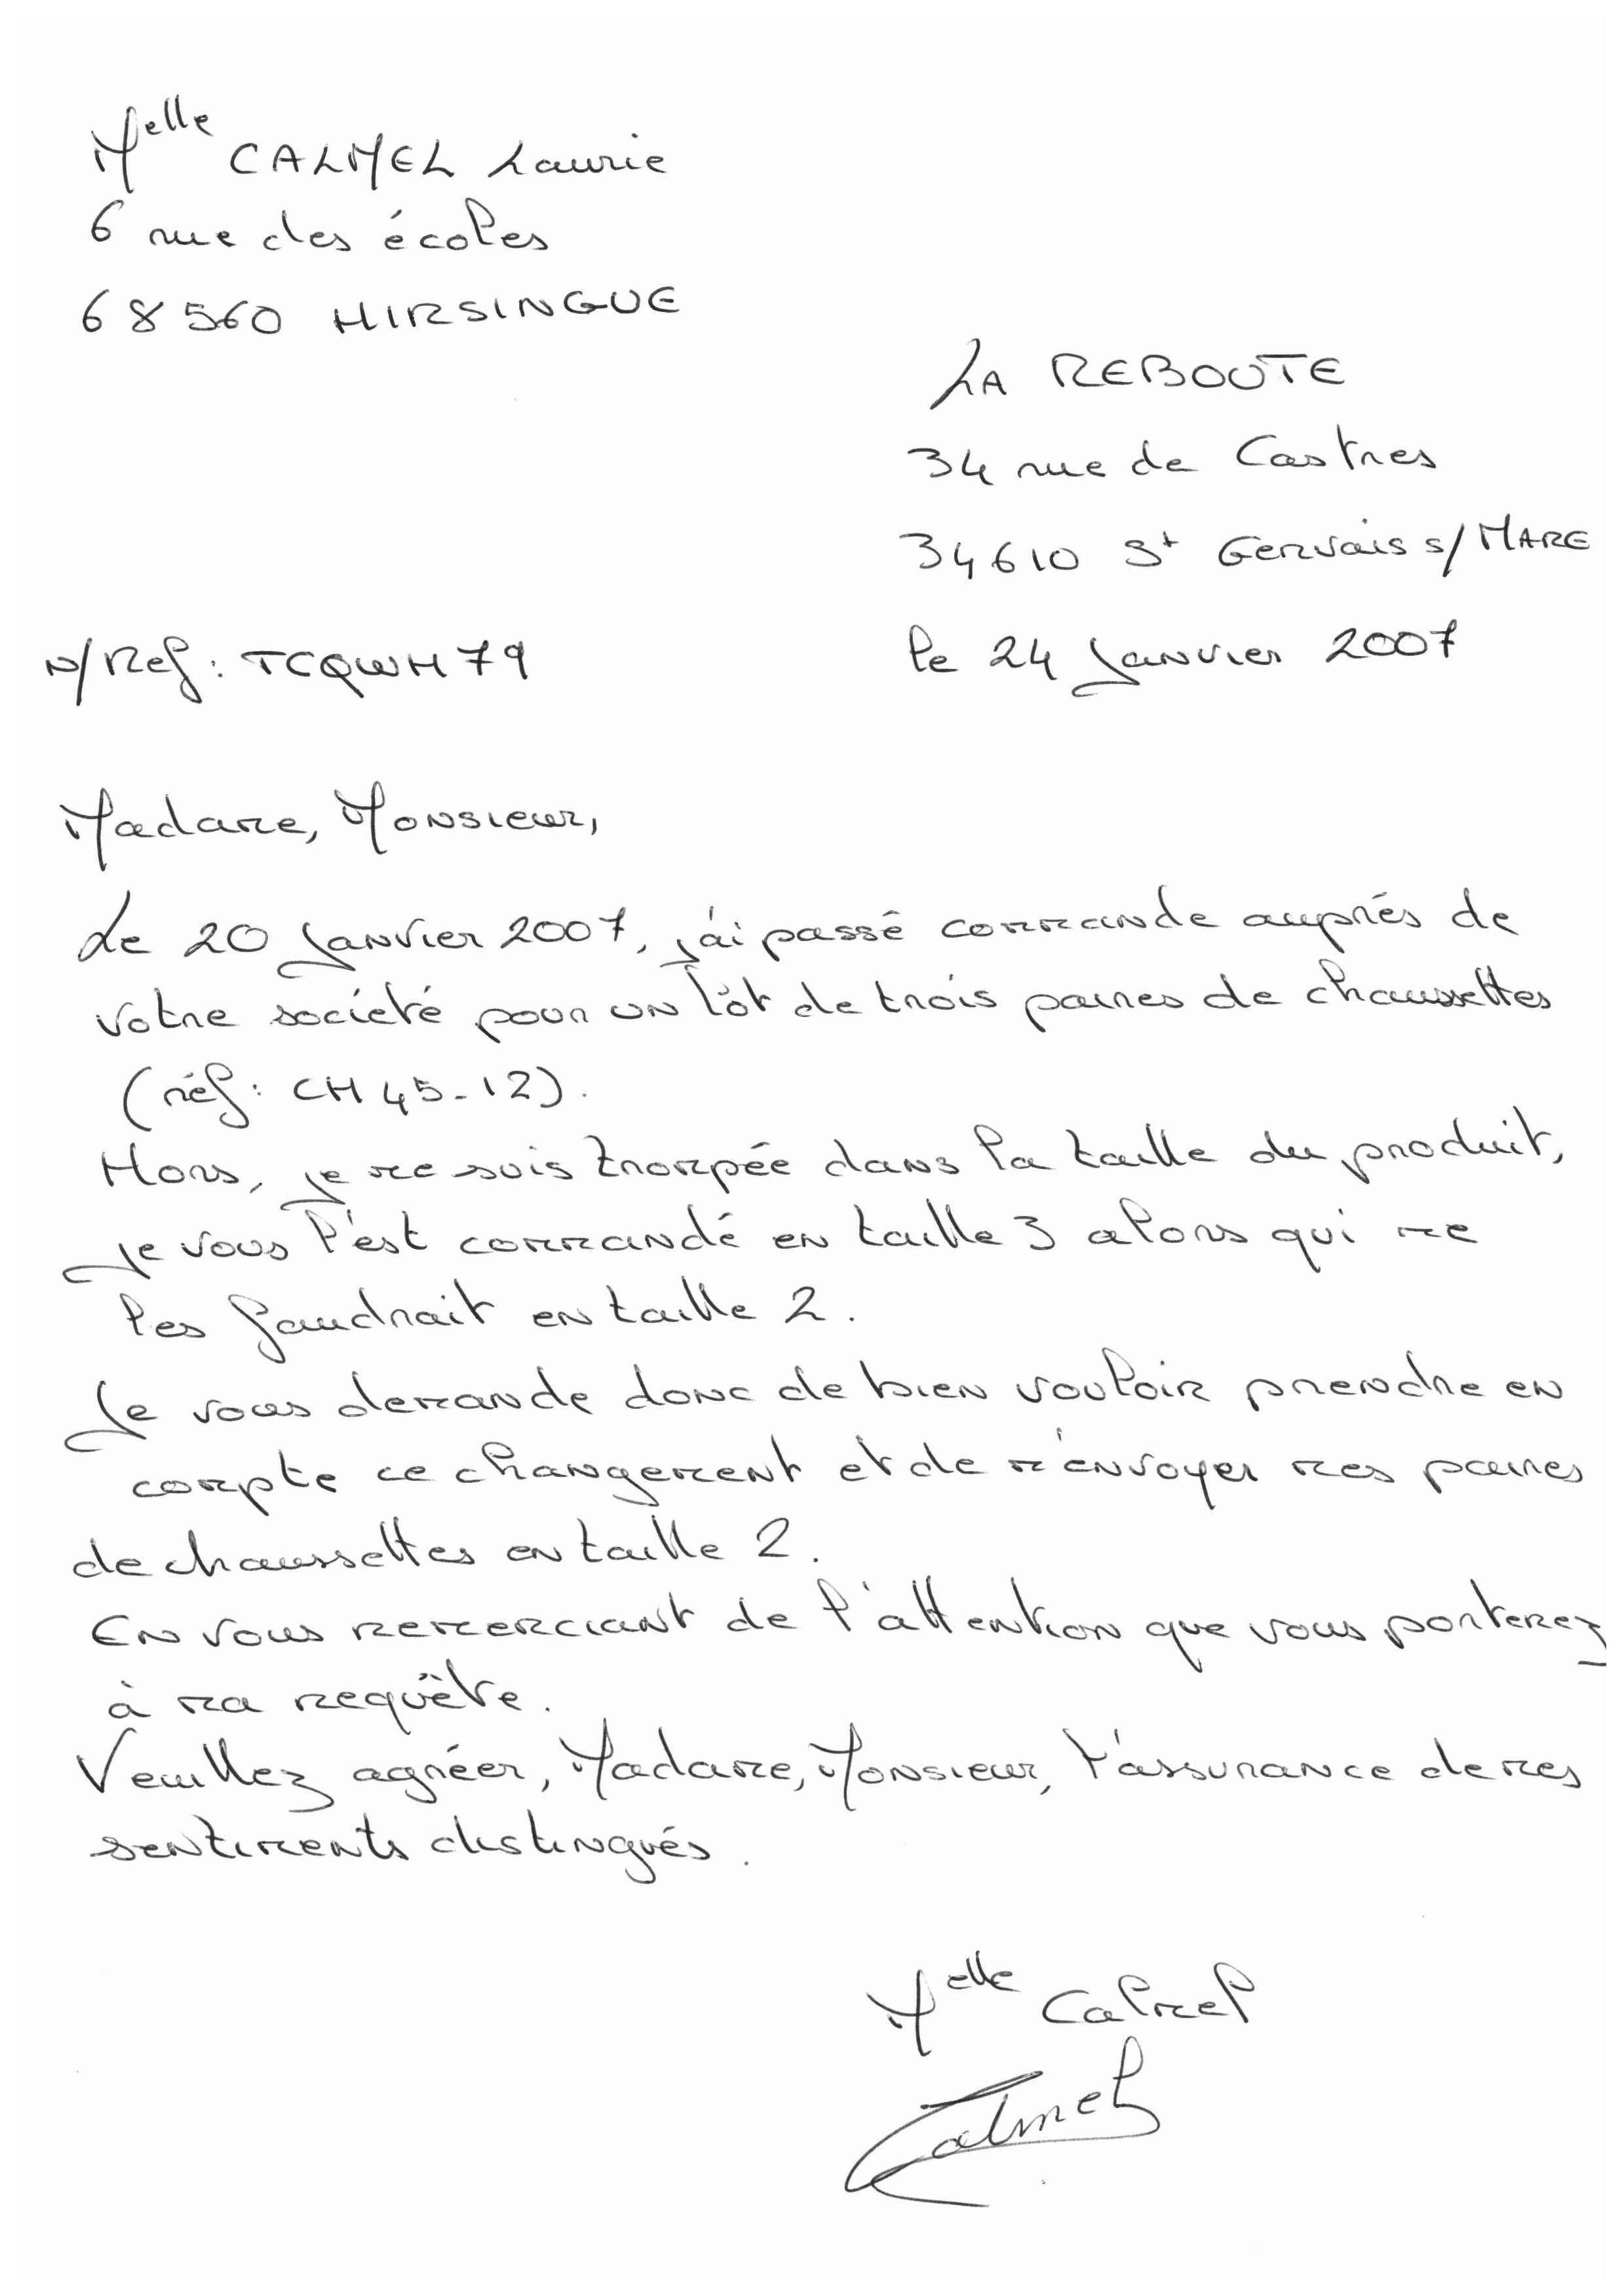 Melle CALMEL Laurie
6 rue des écoles
68560 HIRSINGUE
LA REBOUTE
34 rue de Castres
34610 St Gervais s/MARE
N/Ref : TCQWH79
le 24 Janvier 2007
Madame, Monsieur,
Le 20 Janvier 2007, j'ai passé commande auprés de
votre société pour un lôt de trois paires de chaussettes
(réf : CH45-12).
Hors, je me suis trompée dans la taille du produit,
je vous l'est commandé en taille 3 alors qui me
les faudrait en taille 2.
Je vous demande donc de bien vouloir prendre en
compte ce changement et de m'envoyer mes paires
de chaussettes en taille 2.
En vous remerciant de l'attention que vous porterez
à ma requête.
Veuillez agréer, Madame, Monsieur, l'assurance de mes
sentiments distingués.
Melle Calmel
Calmel